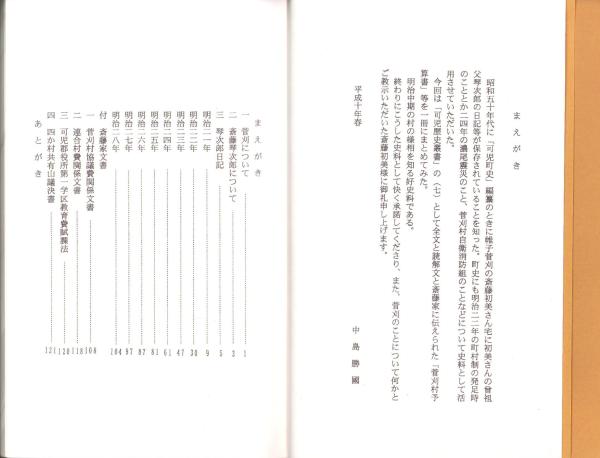 まえがき
昭和五十年代に「可児町史」編纂のときに帷子菅刈の斎藤初美さん宅に初美さんの曾祖
父琴次郎の日記等が保存されていることを知った。町史にも明治二二年の町村制の発足時
のこととか二四年の濃尾震災のこと、菅刈村自衛消防組のことなどについて史料として活
用させていただいた。
今回は「可児歴史叢書」の（七）として全文と読解文と斎藤家に伝えられた「菅刈村予
算書」等を一冊にまとめてみた。
明治中期の村の様相を知る好史料である。
終わりにこうした史料として快く承諾してくださり、また、菅刈のことについて何かと
ご教示いただいた斎藤初美様に御礼申し上げます。
平成十年春
中島勝國
まえがき
一 菅刈について 1
二 斎藤琴次郎について 3
三 琴次郎日記 5
明治二一年 9
明治二二年 30
明治二三年 47
明治二四年 61
明治二五年 81
明治二六年 87
明治二七年 97
明治二八年 104
付 斎藤家文書
一 菅刈村協議費関係文書 108
二 連合村費関係文書 118
三 可児郡役所第一学区教育費賦課法 120
四 四か村共有山議決書 121
あとがき